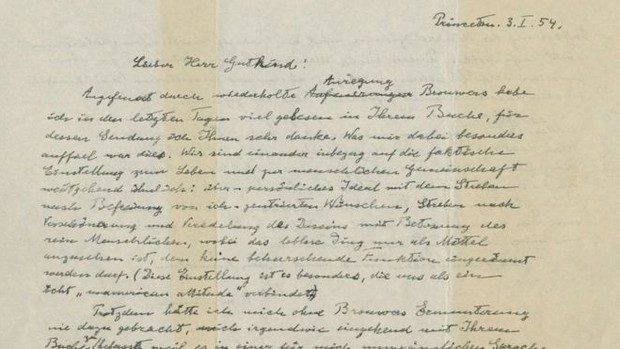 Princeton. 3. I. 54.
Lieber Herr Gutkind!
Anregung
Angefeuert durch wiederholte Brouwers habe
ich in den letzten Tagen viel gelesen in Ihrem Buche, für
dessen Sendung ich Ihnen sehr danke. Was mir dabei besonders
auffiel war dies. Wir sind einander inbezug auf die faktische
Einstellung zum Leben und zur menschlichen Gemeinschaft
weitgehend ähnlich: persönliches Ideal mit dem Streben
nach Befreiung von ich-zentrierten Wünschen, Streben nach
Verschönerung und Veredelung des Daseins mit Betonung des
rein Menschlichen, wobei das leblose Ding nur als Mittel
anzusehen ist, dem keine beherrschende Funktion eingeräumt
werden darf. (Diese Einstellung ist es besonders, die uns als ein
echt "unamerican attitude" verbindet)
Trotzdem hätte ich mich ohne Brouwers Ermunterung
nie dazu gebracht, mich irgendwie eingehend mit Ihrem
Buch zu befassen weil es in einer für mich unzugänglichen Sprache